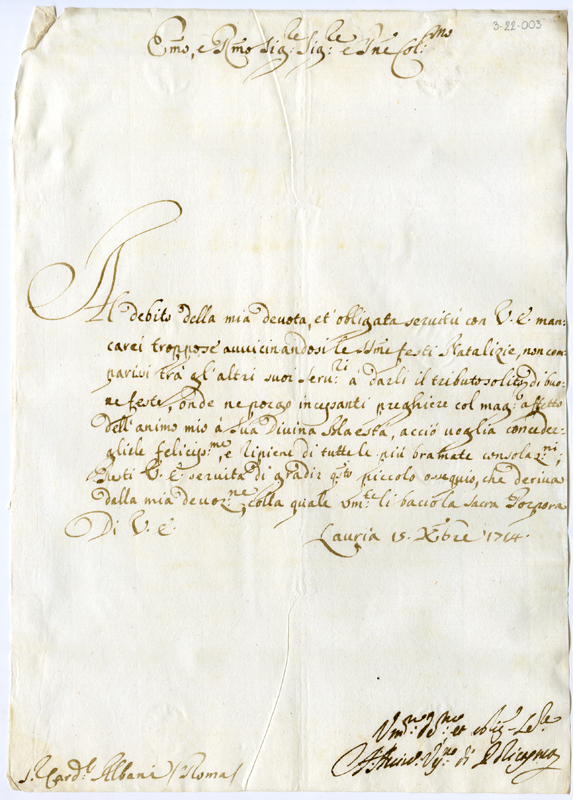 3-22-003
Em͞o, e R͞mo Sig:re Sig:re e P͞ne Col:mo
Al debito della mia devota, et obligata servitù con V. E. man-
carei troppo se avvicinandosi le S͞me festi Natalizie, non com-
parissi trà gl'altri suoi serv:ri à darli il tributo solito di buo-
ne feste, onde ne porgo incessanti preghiere col mag:r affetto
dell'animo mio à Sua Divina Maestà, acciò voglia concede-
gliele felicis:me, e ripiene di tutte le più bramate consolaz:ni,
Resti V. E. servita di gradir q:sto piccolo ossequio, che deriva
dalla mia devoz:ne, colla quale um:te li bacio la Sacra Porpora
Di V. E. Lauria 15. Xbre 1714.
Um:mo et oblig:
di Policastro
S.r Card:l Albani (Roma)